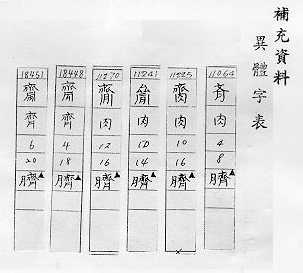 補充資料
異體字表
18451 18448 11270 11241 11225 11064
齊 齊 肉 肉 肉 肉
6 4 12 10 10 4
20 18 16 14 16 8
臍 臍 臍 臍 臍 臍